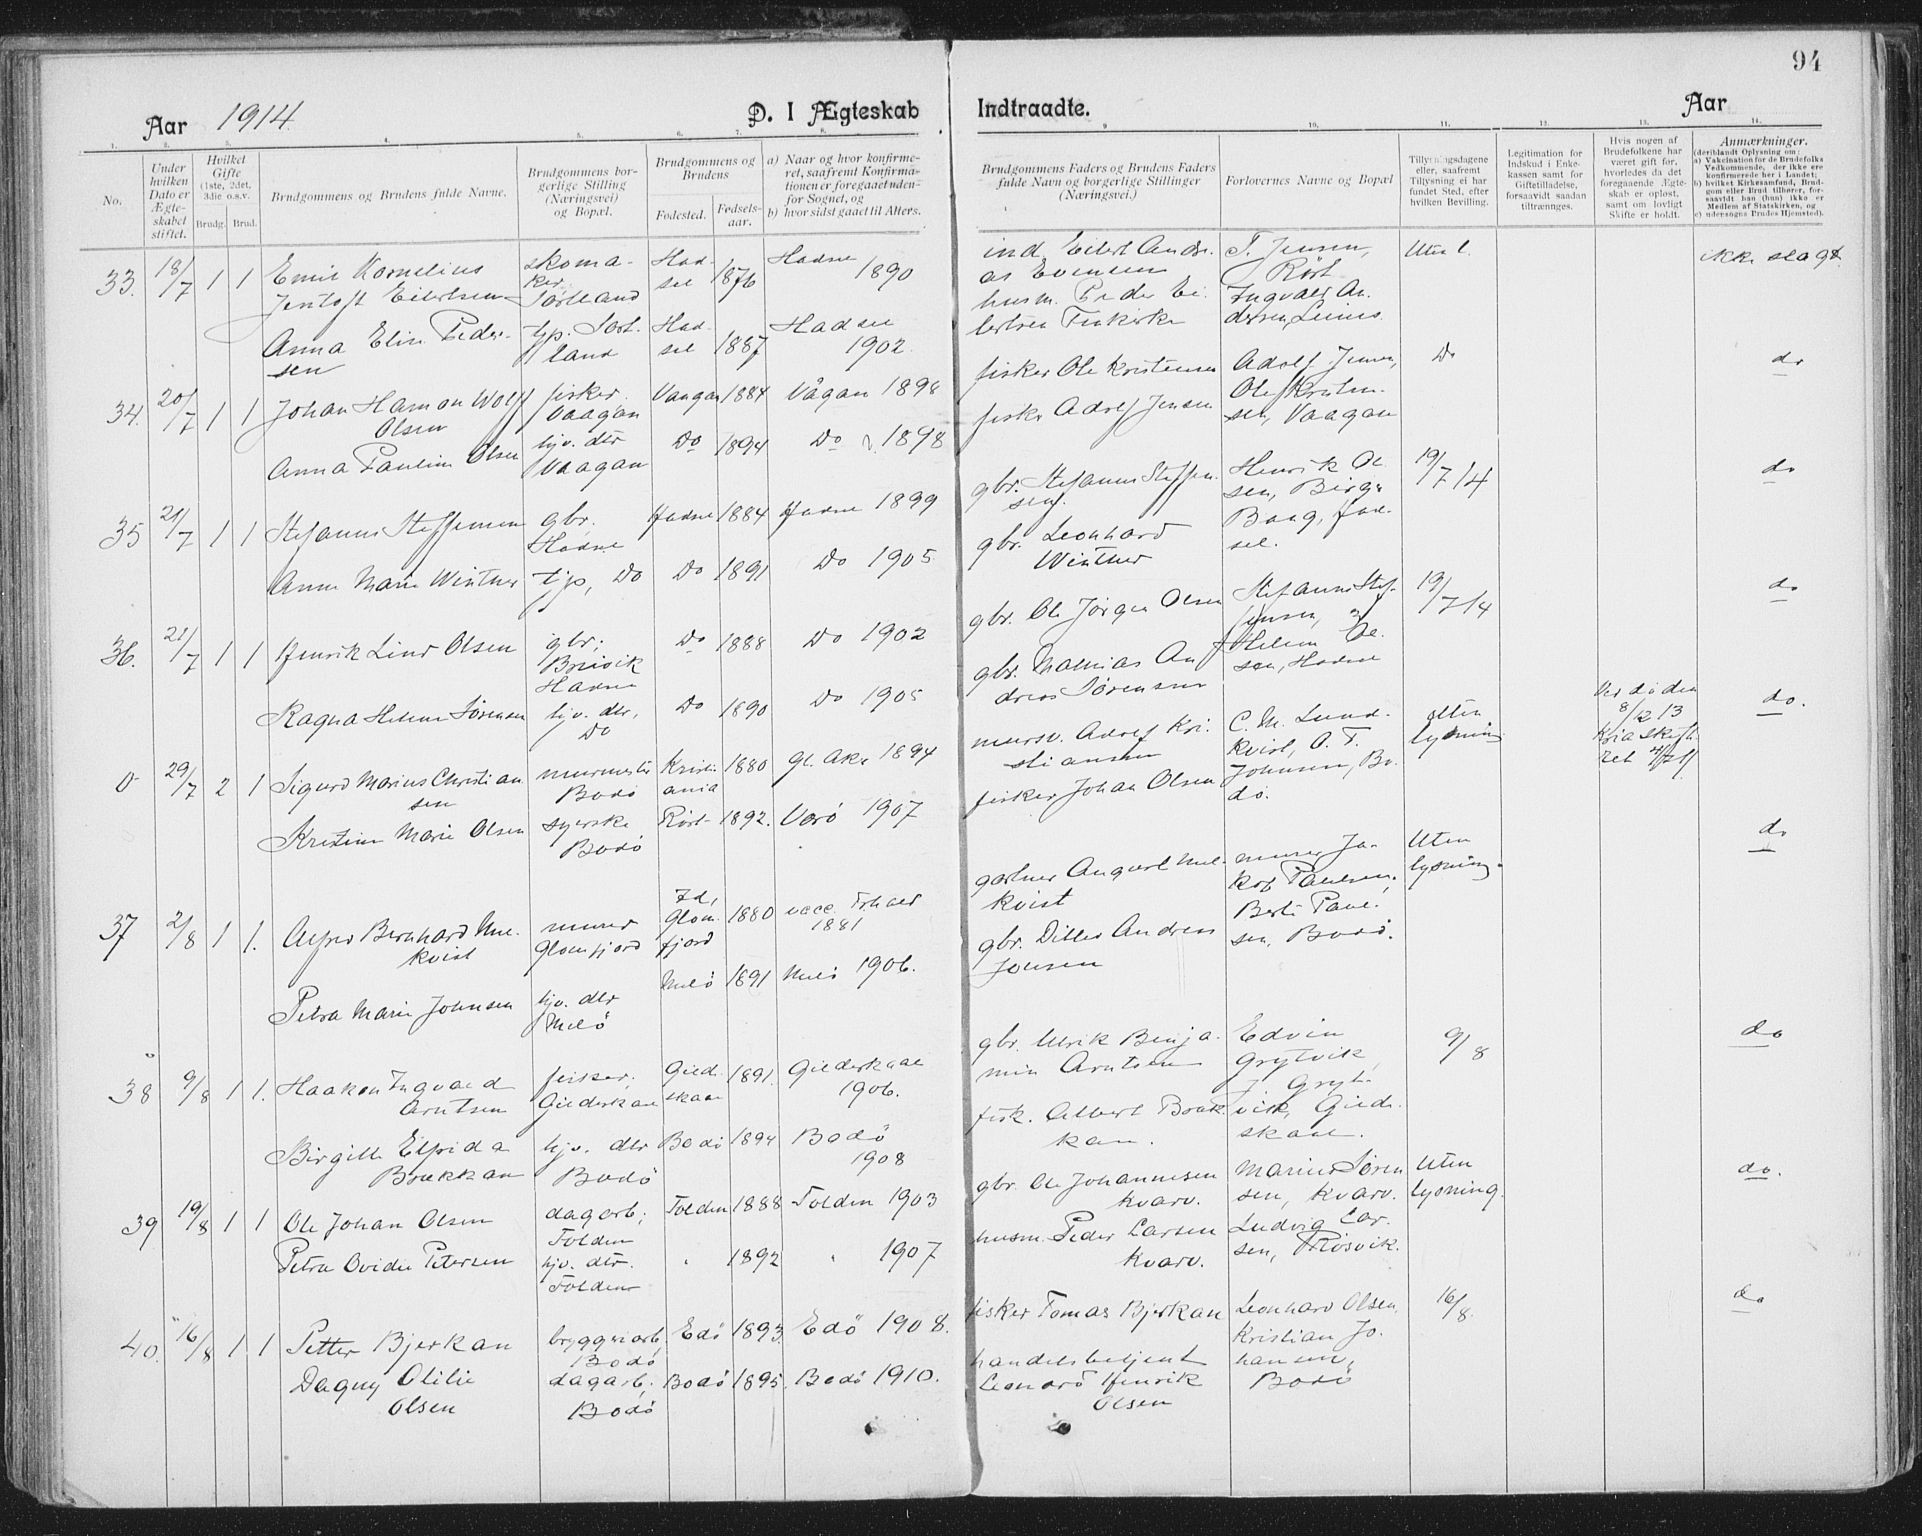 94
Aar 1914.
D. I Ægteskab Indtraadte.
Aar
1. 2. 3. 4. 5. 6. 7. 8. 9. 10. 11. 12. 13. 14.
No.
Under hvilken Dato er Ægteskabet stiftet.
Hvilket Gifte (1ste, 2det, 3die o.s.v.
Brudg. Brud.
Brudgommens og Brudens fulde Navne.
Brudgommens borgerlige Stilling (Næringsvei) og Bopæl.
Brudgommens og Brudens
Fødested. Fødselsaar.
a) Naar og hvor konfirmeret, saafremt Konfirmationen er foregaaet udenfor Sognet, og
b) hvor sidst gaaet til Alters.
Brudgommens Faders og Brudens Faders fulde Navn og borgerlige Stillinger (Næringsvei.)
Forlovernes Navne og Bopæl
Tillysningsdagene eller, saafremt Tillysning ei har fundet Sted, efter hvilken Bevilling.
Legitimation for Indskud i Enkekassen samt for Giftetilladelse, forsaavidt saadan tiltrænges.
Hvis nogen af Brudefolkene har været gift før, hvorledes da det foregaaende Ægteskab er opløst, samt om lovligt Skifte er holdt.
Anmærkninger.
(deriblandt Oplysning om:
a) Vakcination for de Brudefolks Vedkommende, der ikke ere konfirmerede her i Landet;
b) hvilket Kirkesamfund, Brudgom eller Brud tilhører, forsaavidt han (hun) ikke er Medlem af Statskirken, og
c) udensogns Brudes Hjemsted).
33. 18/7 1 1 Emil Kornelius
Jentoft Eilertsen
skomaker
Sortland
Hadsel 1876
Hadsel 1890
ind. Eilert Andreas Evensen
T. Jensen,
Røst
Uten l.
ikke slægt
Anna Elise Pedersen
tjp. Sortland
Hadsel 1887
Hadsel 1902.
husm. Peder Eilertsen
Ingvald Andersen,
34. 20/7 1 1 Johan Hamon Wolf
Olsen
fisker
Vaagan
Vaagan 1884
Vågan 1898
fisker Ole Kristensen
Adolf Jensen,
Ole Kristensen, Vaagan
Do
do
Anna Pauline Olsen
hjv. dtr
Vaagan
Do 1894
Do 1898
fisker Adolf Jensen
35 21/7 1 1 Stefanus Steffensen
gbr.
Hadsel
Hadsel 1884
Hadsel 1899
gbr. Stefanus Steffensen
Henrik Olsen, Birger
Baag, Hadsel.
19/7 14
do
Anne Marie Winther
tjp, Do
Do 1891
Do 1905
gbr. Leonhard
Winther
36. 21/7 1 1 Henrik Lind Olsen
gbr;
Breivik
Hadsel
Do 1888
Do 1902
gbr. Ole Jørgen Olsen
Stefanus Steffensen,
Helene Olsen, Hadsel
19/7 14
do
Ragna Helene Sørensen
hjv. dtr,
Do
Do 1890
Do 1905
gbr. Mathias Andreas Sørensen
0 29/7 2 1 Sigurd Marius Christiansen
murmester
Bodø
Kristiania 1880
Gl. Aker 1894
mursv. Adolf Kristiansen
C. M. Lundkvist, O. T.
Johnsen, Bodø.
Uten
lysning
Ved døden
8/12 13
do.
Kristine Marie Olsen
syerske
Bodø
Røst 1892.
Værø 1907
fisker Johan Olsen
37 2/8 1 1. Alfred Bernhard Mulkvist
murer
Glomfjord
Glomfjord 1880
vacc. 1881
gartner August Mulkvist
murer Jakob Paulsen,
Berti Paulsen, Bodø.
Uten
lysning.
do
Petra Marie Johnsen
hjv. dtr
Melø
Melø 1891
Melø 1906.
gbr. Ditlev Andreas
Jonsen
38 9/8 1 1. Haakon Ingvald
Arntsen
fisker;
Gildeskaal
Gildskaal 1891.
Gildeskaal
1906.
gbr. Ulrik Benjamin Arntsen
Edvin
Grytvik,
J. Grytvik, Gildskaal.
9/8
do
Birgitte Elfrida
Brækkan
hjv. dtr
Bodø
Bodø 1894
Bodø
1908
fisk. Albert Brækkan.
39 19/8 1 1 Ole Johan Olsen
dagarb;
Folden
Folden 1888
Folden 1903
gbr. Ole Johannesen
Kvarv.
Marius Sørensen, Kvarv.
Uten
lysning.
do.
Petra Ovidie Petersen
hjv. dtr.
Folden
" 1892
" 1907
husm. Peder Larsen
Kvarv.
Ludvig Larsen, Røsvik.
40. 16/8 1 1 Petter Bjerkan
bryggeriarb.
Bodø
Edø 1893
Edø 1908.
fisker Tomas Bjerkan
Leonhard Olsen,
Kristian Johansen,
Bodø
16/8.
do
Dagny Otilie
Olsen
dagarb;
Bodø
Bodø 1895.
Bodø 1910.
handelsbetjent
Leonard Henrik
Olsen